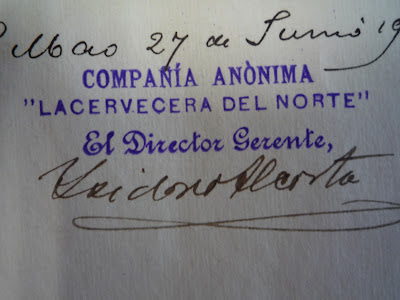 Bilbao 27 de Junio 19
COMPAÑÍA ANÒNIMA
"LACERVECERA DEL NORTE"
El Director Gerente,
Isidoro Acosta